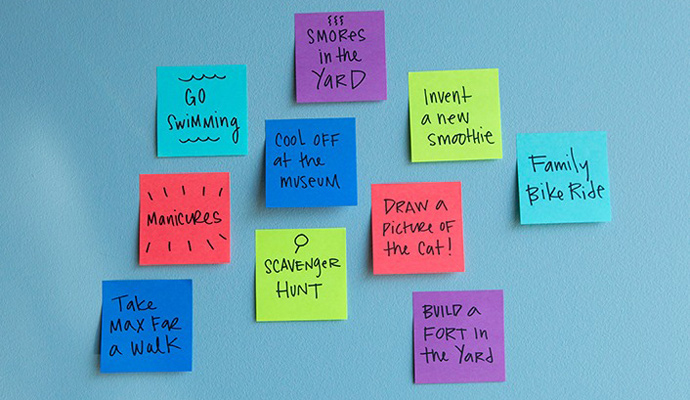 SMORES
in the
YARD
GO
SWIMMING
Invent
a new
smoothie
COOL OFF
at the
museum
Family
Bike Ride
MANICURES
DRAW a
picture of
the cat!
SCAVENGER
HUNT
Take
MAX FAR
a WALK
BUILD a
FORT in
the YARD